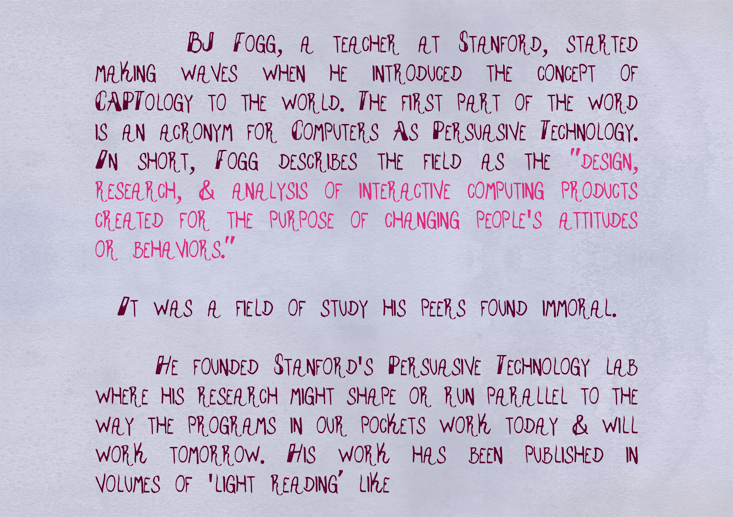 BJ Fogg, a teacher at Stanford, started
making waves when he introduced the concept of
CAPTology to the world. The first part of the word
is an acronym for Computers As Persuasive Technology.
In short, Fogg describes the field as the "design,
research, & analysis of interactive computing products
created for the purpose of changing people's attitudes
or behaviors."
It was a field of study his peers found immoral.
He founded Stanford's Persuasive Technology lab
where his research might shape or run parallel to the
way the programs in our pockets work today & will
work tomorrow. His work has been published in
volumes of 'light reading' like